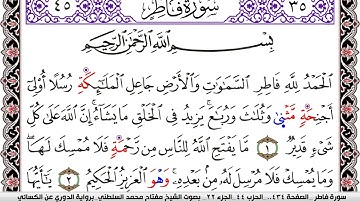 ٤٥ سورة فاطر ٣٥
بِسْمِ اللَّهِ الرَّحْمَٰنِ الرَّحِيمِ
الْحَمْدُ لِلَّهِ فَاطِرِ السَّمَٰوَٰتِ وَالْأَرْضِ جَاعِلِ الْمَلَٰٓئِكَةِ رُسُلًا أُو۟لِىٓ
أَجْنِحَةٍ مَّثْنَىٰ وَثُلَٰثَ وَرُبَٰعَ يَزِيدُ فِى الْخَلْقِ مَا يَشَآءُ إِنَّ اللَّهَ عَلَىٰ كُلِّ
شَىْءٍ قَدِيرٌ ١ مَّا يَفْتَحِ اللَّهُ لِلنَّاسِ مِن رَّحْمَةٍ فَلَا مُمْسِكَ لَهَا
وَمَا يُمْسِكْ فَلَا مُرْسِلَ لَهُۥ مِنۢ بَعْدِهِۦ وَهْوَ الْعَزِيزُ الْحَكِيمُ ٢ يَٰٓأَيُّهَا
سورة فاطر . الصفحة ٤٣٤.. الحزب ٤٤ .الجزء ٢٢ . بصوت الشيخ مفتاح محمد السلطني .برواية الدوري عن الكسائي